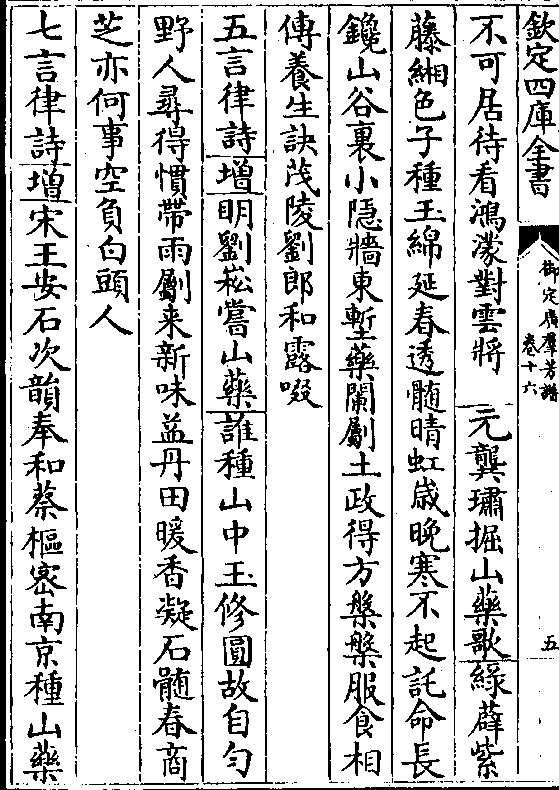 欽定四庫全書
御定廣羣芳譜
卷十六
五
不可居待看鴻濛對雲將 元龔璛掘山藥歌緑薜紫
藤緗色子種玉綿延春透髓晴虹歲晚寒不起託命長
鑱山谷裏小隱牆東塹藥闌劚土政得方槃槃服食相
傳養生訣茂陵劉郎和露啜
五言律詩增明劉崧嘗山藥誰種山中玉修圓故自勻
野人尋得慣帶雨劚来新味益丹田暖香凝石髓春商
芝亦何事空負白頭人
七言律詩增宋王安石次韻奉和蔡樞密南京種山藥